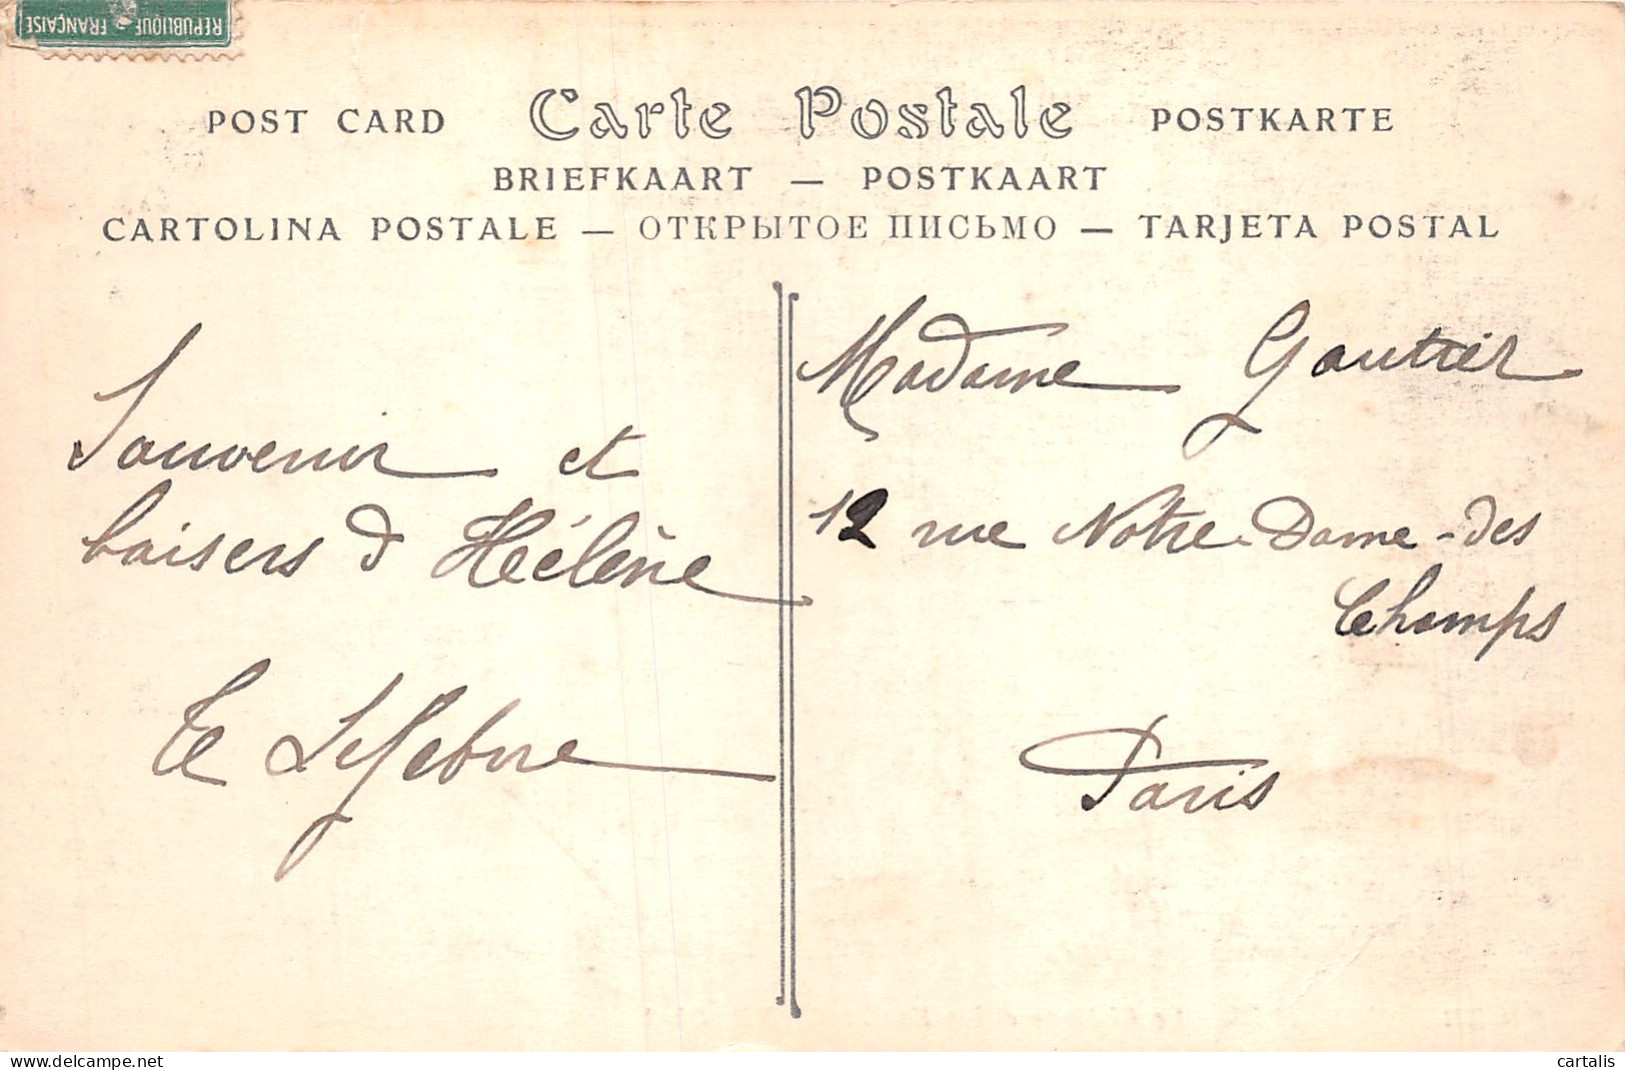 REPUBLIQUE FRANÇAISE
POST CARD Carte Postale POSTKARTE
BRIEFKAART — POSTKAART
CARTOLINA POSTALE — ОТКРЫТОЕ ПИСЬМО — TARJETA POSTAL
Souvenir et
baisers d'Hélène
Lefebvre
Madame Gautier
12 rue Notre-Dame-des
Champs
Paris
www.delcampe.net
cartalis